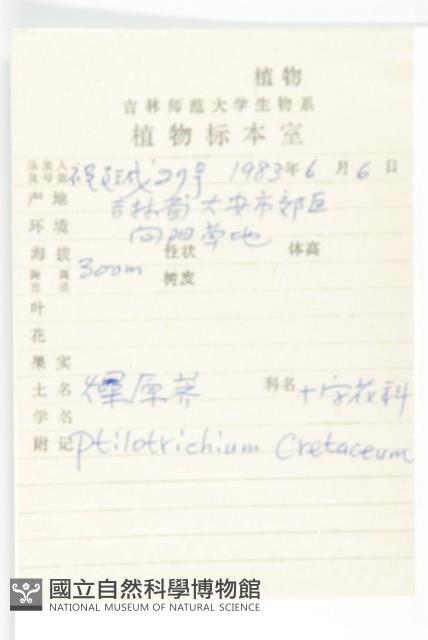 植物
吉林师范大学生物系
植物标本室
采集人及号数 程廷成 27号 1983年6月6日
产地 吉林省大安市郊区
环境 向阳草地
海拔 300m 性状 体高
胸高直径 树皮
叶
花
果实
土名 燥原荠 科名 十字花科
学名
附记 Ptilotrichium Cretaceum
國立自然科學博物館
NATIONAL MUSEUM OF NATURAL SCIENCE